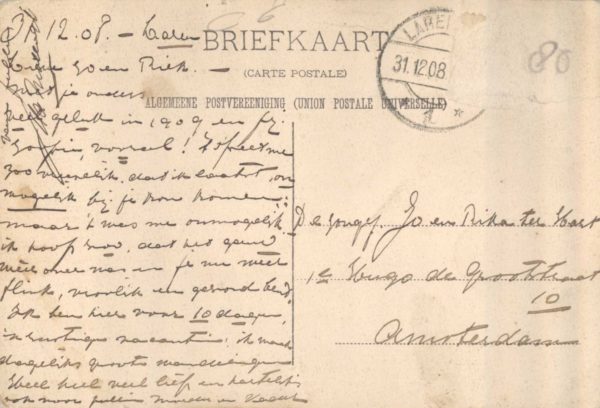 31.12.08. – Laren
BRIEFKAART
(CARTE POSTALE)
ALGEMEENE POSTVEREENIGING (UNION POSTALE UNIVERSELLE)
LAREN
31.12.08
1
80
Lieve Jo en Riek. –
Met je ouders
veel geluk in 1909 en
vooral! 't speet me
zoo vreeselijk, dat ik laatst, on
mogelijk bij je kon komen;
maar 't was me onmogelijk
ik hoop zoo, dat het gauw
weer over was en je nu weer
flink, vroolijk en gezond bent.
Ik ben hier voor 10 dagen,
vacantie; ik maak
dagelijks groote wandelingen
Heel heel veel liefs en hartelijks
ook voor jullie moeder en Vader
De Jongej. Jo en Rika ter Horst
1e Hugo de Grootstraat
10
Amsterdam